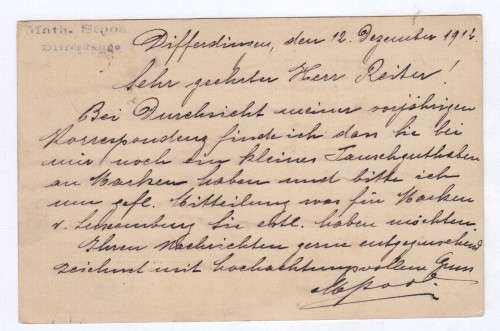 Math. Spoo
Differdange
Differdingen, den 12. Dezember 191
Sehr geehrter Herr Reiter!
Bei Durchsicht meiner vorjährigen
Korrespondenz finde ich dass Sie bei
mir noch ein kleines Tauschguthaben
an Marken haben und bitte ich
um gefl. Mitteilung was für Marken
v. Luxemburg Sie evtl. haben möchten.
Ihren Nachrichten gerne entgegensehend
zeichnet mit hochachtungsvollem Gruss
MSpoo.